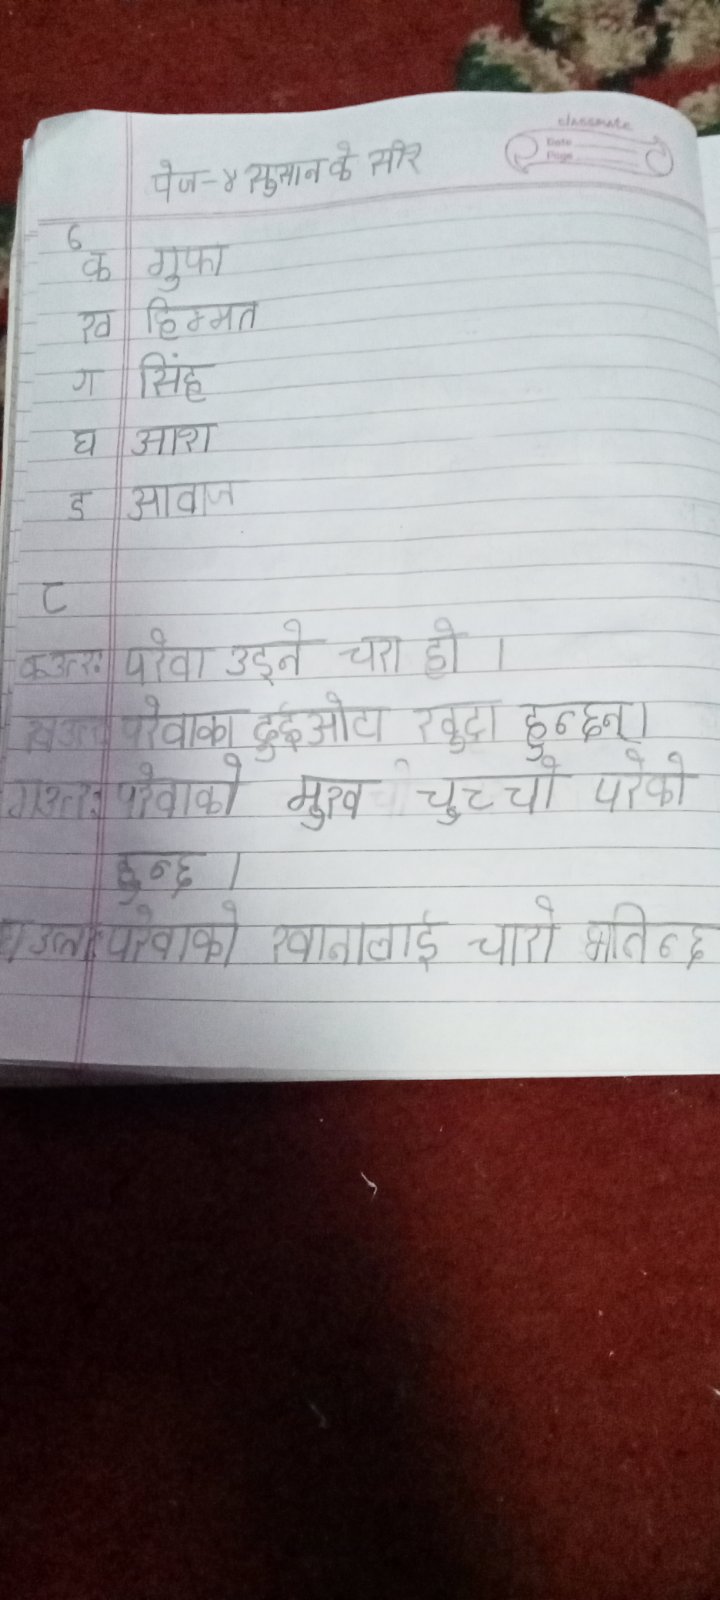 classmate
Date
Page
पेज-४ सुसान के सीर
६
क गुफा
ख हिम्मत
ग सिंह
घ आशा
ङ आवाज
८
क उत्तरः परेवा उड्ने चरा हो ।
ख उत्तरः परेवाका दुईओटा खुट्टा हुन्छन् ।
ग उत्तरः परेवाको मुख चुच्चो परेको
हुन्छ ।
घ उत्तरः परेवाको खानालाई चारो भनिन्छ